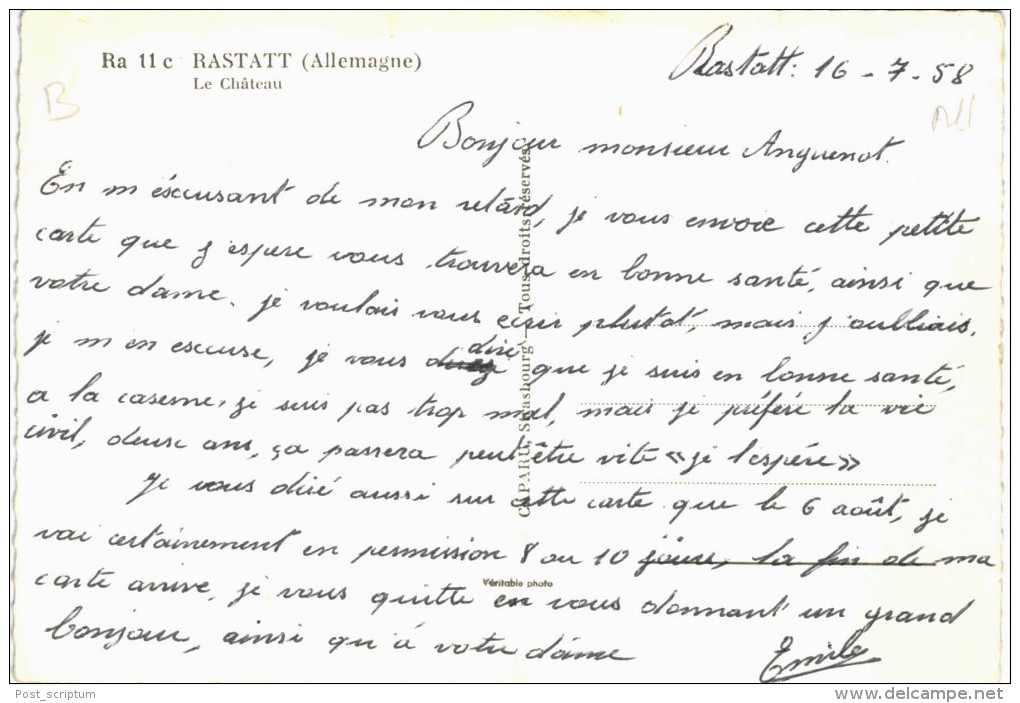 Ra 11 c RASTATT (Allemagne)
Le Château
Rastatt: 16 - 7 - 58
B
All
Bonjour monsieur Anguenot.
En m'éscusant de mon retard, je vous envoie cette petite
carte que j'espere vous trouvera en bonne santé, ainsi que
votre dame. je voulais vous écrir plutot, mais j'oubliais,
je m'en escuse, je vous dire que je suis en bonne santé,
a la caserne, je suis pas trop mal, mais je préfére la vie
civil, deuse ans, ça passera peut être vite «je l'espére»
Je vous diré aussi sur cette carte que le 6 août, je
vai certainement en permission 8 ou 10 jours, la fin de ma
carte arrive, je vous quitte en vous donnant un grand
bonjour, ainsi qu'á votre dame
Emile
CAPARU, Strasbourg - Tous droits réservés
Véritable photo
Post_scriptum
www.delcampe.net